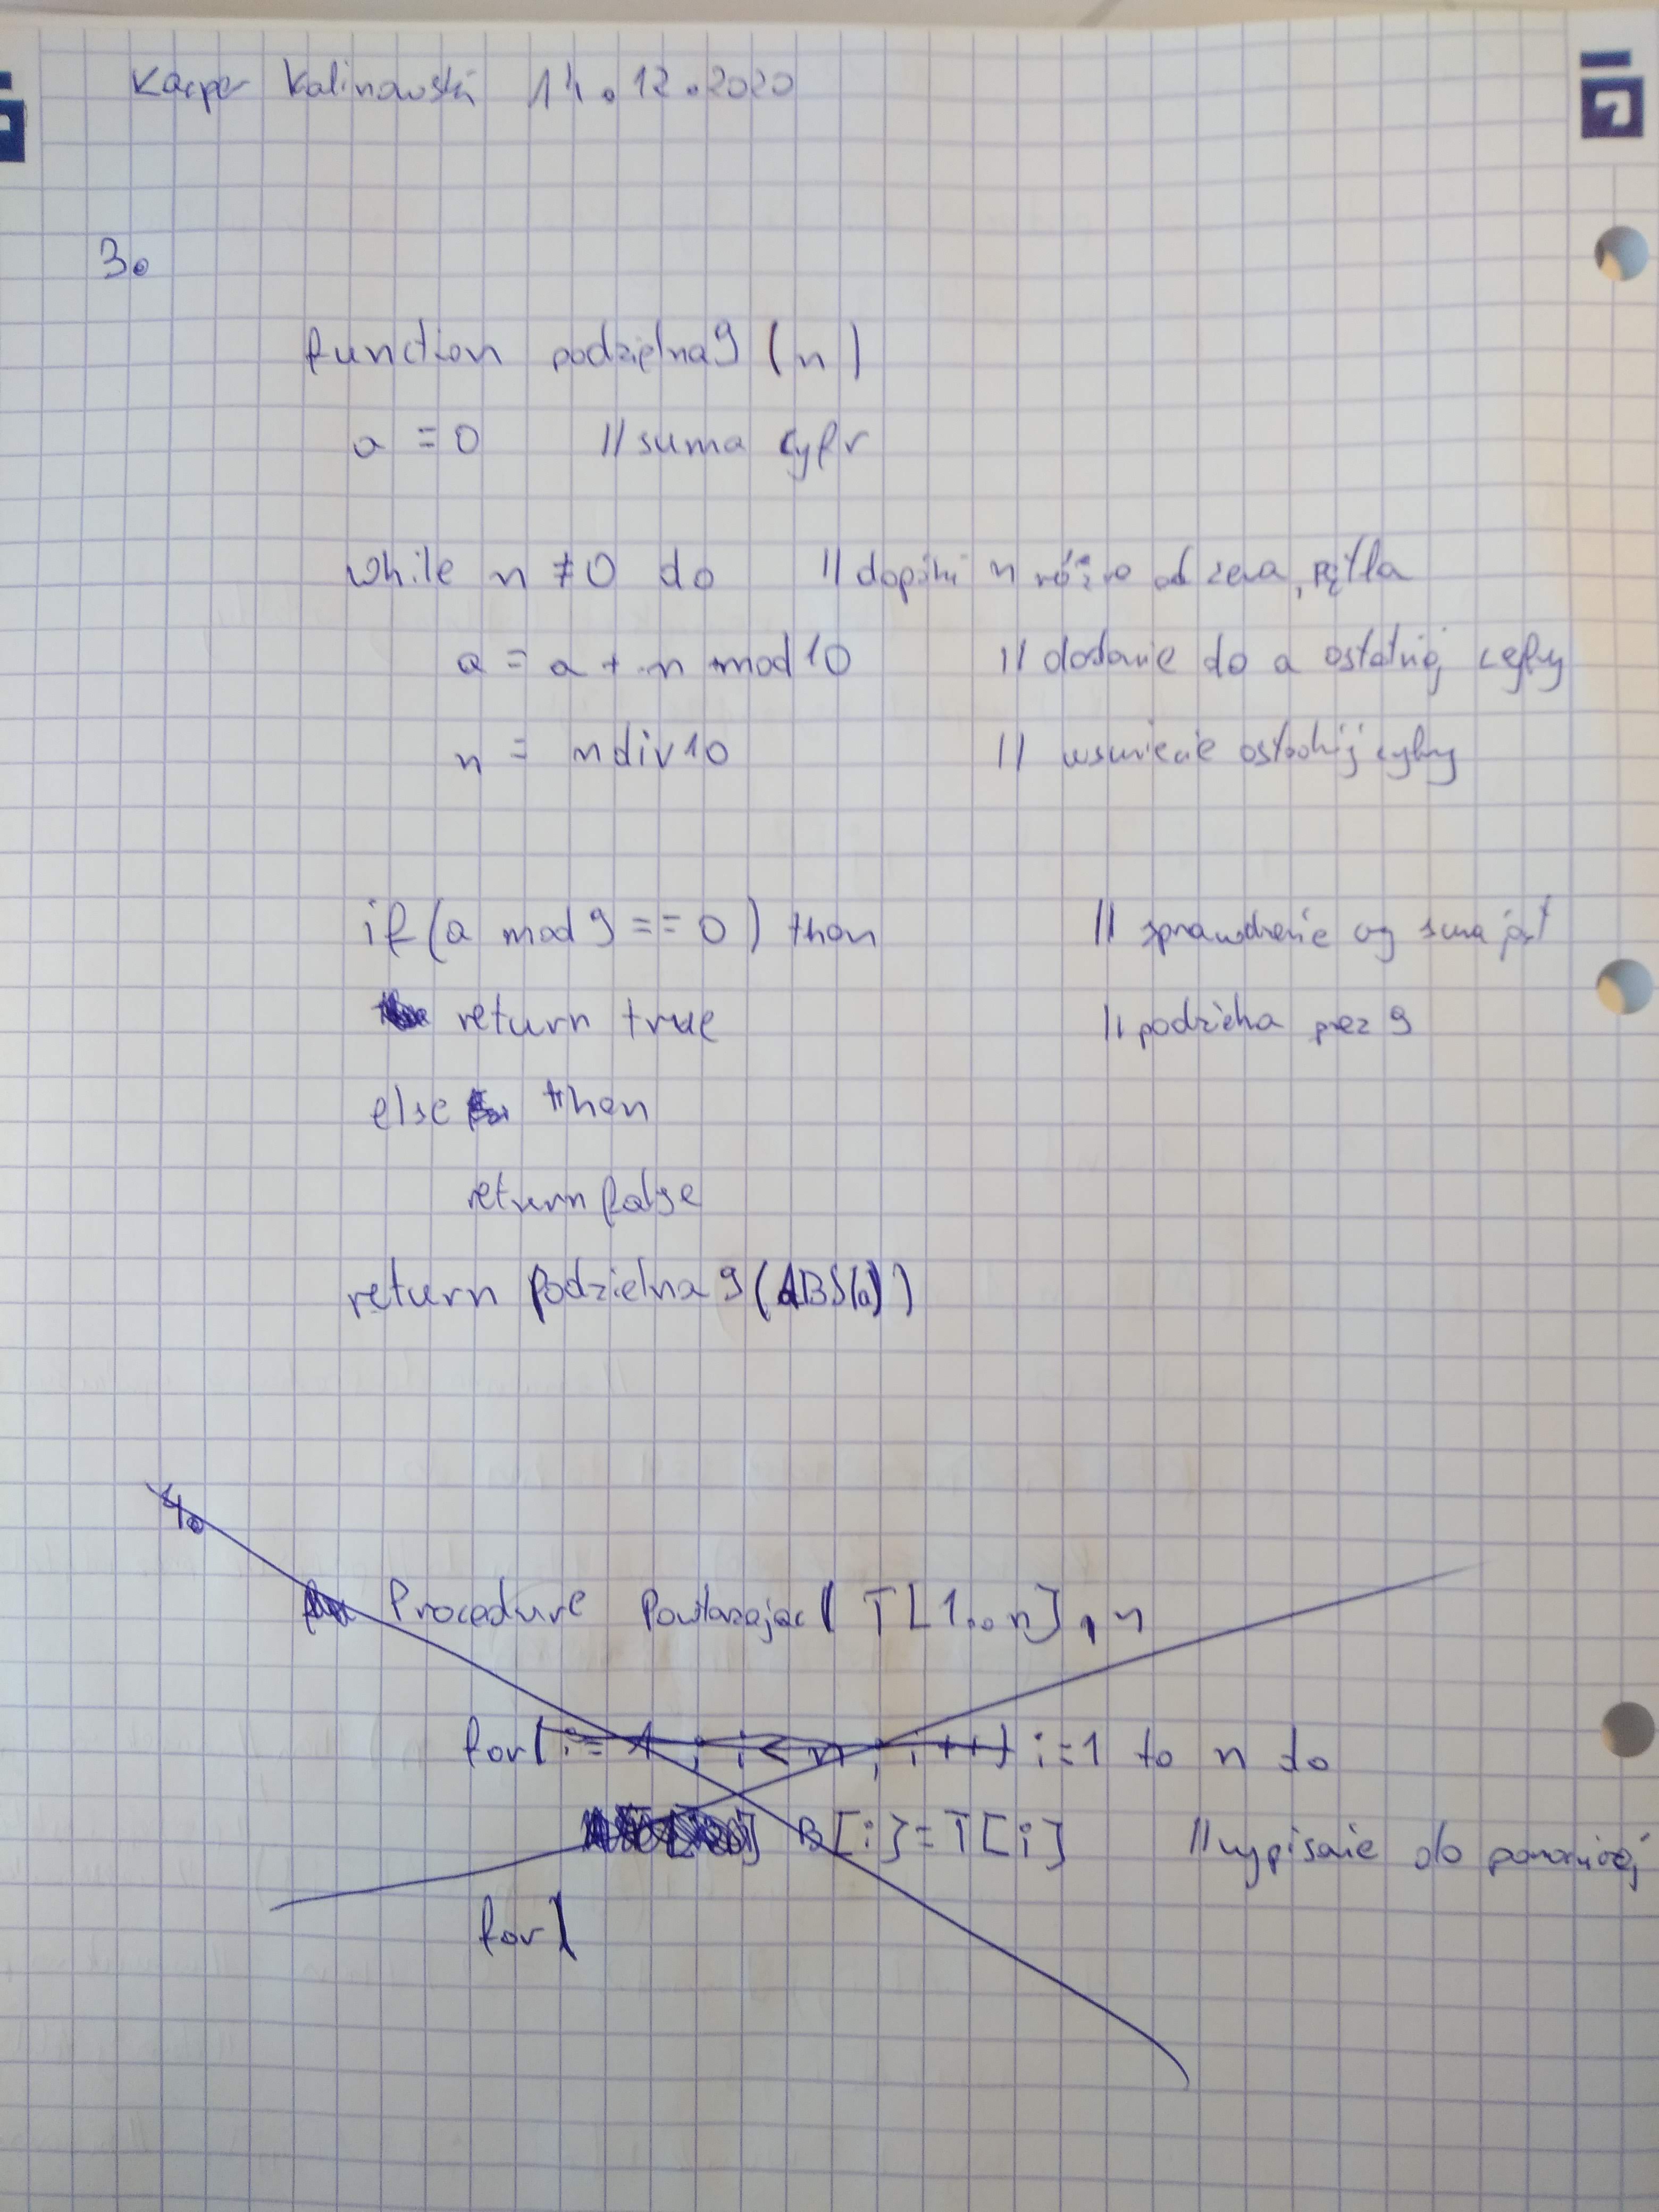 Kacper Kalinowski 14.12.2020
3.
function podzielna9 (n)
a = 0 // suma cyfr
while n ≠ 0 do // dopóki n różne od zera, pętla
a = a + n mod 10 // dodanie do a ostatniej cyfry
n = n div 10 // usuniecie ostatniej cyfry
if (a mod 9 == 0) then // sprawdzenie czy suma jest
return true // podzielna przez 9
else then
return false
return Podzielna9(ABS(a))
4.
Procedure Powtarzajac( T[1..n], n
for( i = 1 ; i < n ; i++) i=1 to n do
B[i] = T[i] // wypisanie do pomocniczej
for(